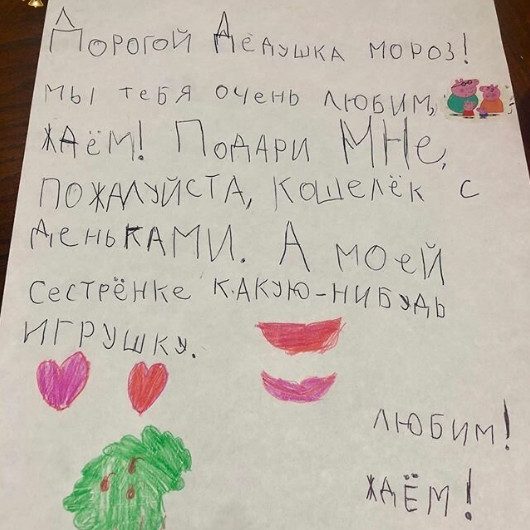 Дорогой Дедушка мороз!
мы тебя очень любим,
ждём! Подари мне,
пожалуйста, кошелёк с
деньками. А моей
сестрёнке какую-нибудь
игрушку.
любим!
ждём!